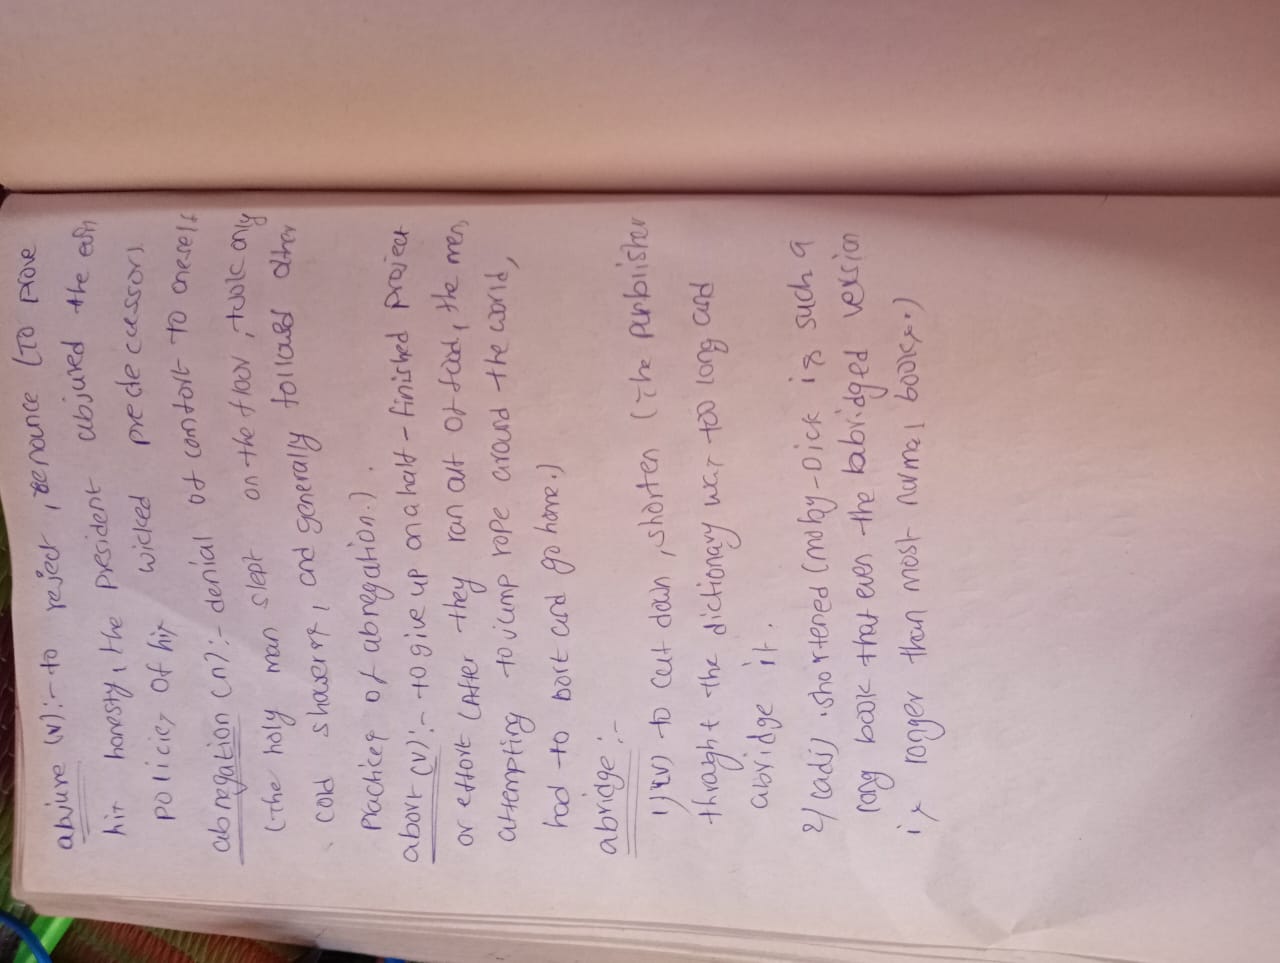 abjure (v):- to reject, renounce (To prove
his honesty, the president abjured the evil
policies of his wicked predecessors)
abnegation (n):- denial of comfort to oneself
(the holy man slept on the floor, took only
cold showers, and generally followed other
practices of abnegation.)
abort (v):- to give up on a half-finished project
or effort (After they ran out of food, the men,
attempting to jump rope around the world,
had to bort and go home.)
abridge:-
1) (v) to cut down, shorten (The publisher
thought the dictionary was too long and
abridge it.
2) (adj) shortened (moby-Dick is such a
long book that even the babridged version
is longer than most normal books.)